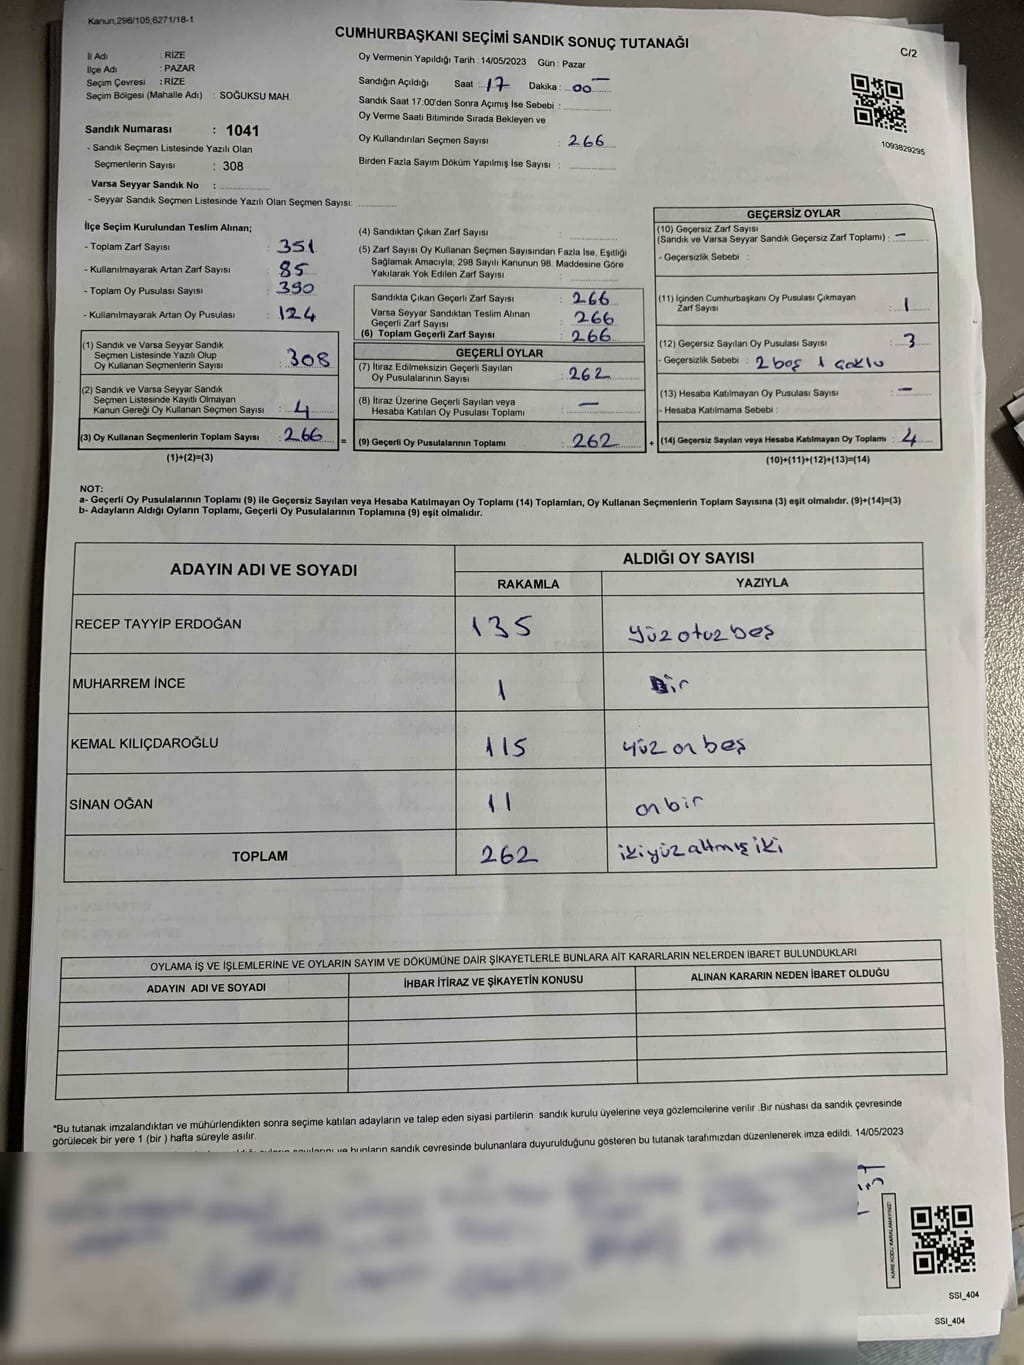 Kanun,298/105;6271/18-1
CUMHURBAŞKANI SEÇİMİ SANDIK SONUÇ TUTANAĞI
C/2
İl Adı : RİZE
İlçe Adı : PAZAR
Seçim Çevresi : RİZE
Seçim Bölgesi (Mahalle Adı) : SOĞUKSU MAH.
Sandık Numarası : 1041
- Sandık Seçmen Listesinde Yazılı Olan
Seçmenlerin Sayısı : 308
Varsa Seyyar Sandık No :
- Seyyar Sandık Seçmen Listesinde Yazılı Olan Seçmen Sayısı:
Oy Vermenin Yapıldığı Tarih : 14/05/2023 Gün : Pazar
Sandığın Açıldığı Saat : 17 Dakika : 00
Sandık Saat 17:00'den Sonra Açımış İse Sebebi :
Oy Verme Saati Bitiminde Sırada Bekleyen ve
Oy Kullandırılan Seçmen Sayısı : 266
Birden Fazla Sayım Döküm Yapılmış İse Sayısı :
1093829295
İlçe Seçim Kurulundan Teslim Alınan;
- Toplam Zarf Sayısı : 351
- Kullanılmayarak Artan Zarf Sayısı : 85
- Toplam Oy Pusulası Sayısı : 390
- Kullanılmayarak Artan Oy Pusulası : 124
(1) Sandık ve Varsa Seyyar Sandık
Seçmen Listesinde Yazılı Olup
Oy Kullanan Seçmenlerin Sayısı : 308
(2) Sandık ve Varsa Seyyar Sandık
Seçmen Listesinde Kayıtlı Olmayan
Kanun Gereği Oy Kullanan Seçmen Sayısı : 4
(3) Oy Kullanan Seçmenlerin Toplam Sayısı : 266 =
(1)+(2)=(3)
(4) Sandıktan Çıkan Zarf Sayısı :
(5) Zarf Sayısı Oy Kullanan Seçmen Sayısından Fazla İse, Eşitliği
Sağlamak Amacıyla; 298 Sayılı Kanunun 98. Maddesine Göre
Yakılarak Yok Edilen Zarf Sayısı :
Sandıkta Çıkan Geçerli Zarf Sayısı : 266
Varsa Seyyar Sandıktan Teslim Alınan
Geçerli Zarf Sayısı : 266
(6) Toplam Geçerli Zarf Sayısı : 266
GEÇERLİ OYLAR
(7) İtiraz Edilmeksizin Geçerli Sayılan
Oy Pusulalarının Sayısı : 262
(8) İtiraz Üzerine Geçerli Sayılan veya
Hesaba Katılan Oy Pusulası Toplamı : —
(9) Geçerli Oy Pusulalarının Toplamı : 262 +
GEÇERSİZ OYLAR
(10) Geçersiz Zarf Sayısı
(Sandık ve Varsa Seyyar Sandık Geçersiz Zarf Toplamı) : —
- Geçersizlik Sebebi :
(11) İçinden Cumhurbaşkanı Oy Pusulası Çıkmayan
Zarf Sayısı : 1
(12) Geçersiz Sayılan Oy Pusulası Sayısı : 3
- Geçersizlik Sebebi : 2 boş 1 çoklu
(13) Hesaba Katılmayan Oy Pusulası Sayısı : —
- Hesaba Katılmama Sebebi :
(14) Geçersiz Sayılan veya Hesaba Katılmayan Oy Toplamı : 4
(10)+(11)+(12)+(13)=(14)
NOT:
a- Geçerli Oy Pusulalarının Toplamı (9) ile Geçersiz Sayılan veya Hesaba Katılmayan Oy Toplamı (14) Toplamları, Oy Kullanan Seçmenlerin Toplam Sayısına (3) eşit olmalıdır. (9)+(14)=(3)
b- Adayların Aldığı Oyların Toplamı, Geçerli Oy Pusulalarının Toplamına (9) eşit olmalıdır.
ADAYIN ADI VE SOYADI
ALDIĞI OY SAYISI
RAKAMLA YAZIYLA
RECEP TAYYİP ERDOĞAN 135 yüz otuz beş
MUHARREM İNCE 1 Bir
KEMAL KILIÇDAROĞLU 115 yüz on beş
SİNAN OĞAN 11 on bir
TOPLAM 262 ikiyüz altmış iki
OYLAMA İŞ VE İŞLEMLERİNE VE OYLARIN SAYIM VE DÖKÜMÜNE DAİR ŞİKAYETLERLE BUNLARA AİT KARARLARIN NELERDEN İBARET BULUNDUKLARI
ADAYIN ADI VE SOYADI İHBAR İTİRAZ VE ŞİKAYETİN KONUSU ALINAN KARARIN NEDEN İBARET OLDUĞU
*Bu tutanak imzalandıktan ve mühürlendikten sonra seçime katılan adayların ve talep eden siyasi partilerin sandık kurulu üyelerine veya gözlemcilerine verilir .Bir nüshası da sandık çevresinde
görülecek bir yere 1 (bir ) hafta süreyle asılır.
ve bunların sandık çevresinde bulunanlara duyurulduğunu gösteren bu tutanak tarafımızdan düzenlenerek imza edildi. 14/05/2023
KARE KODU KARALAMAYINIZ!
SSI_404
SSI_404